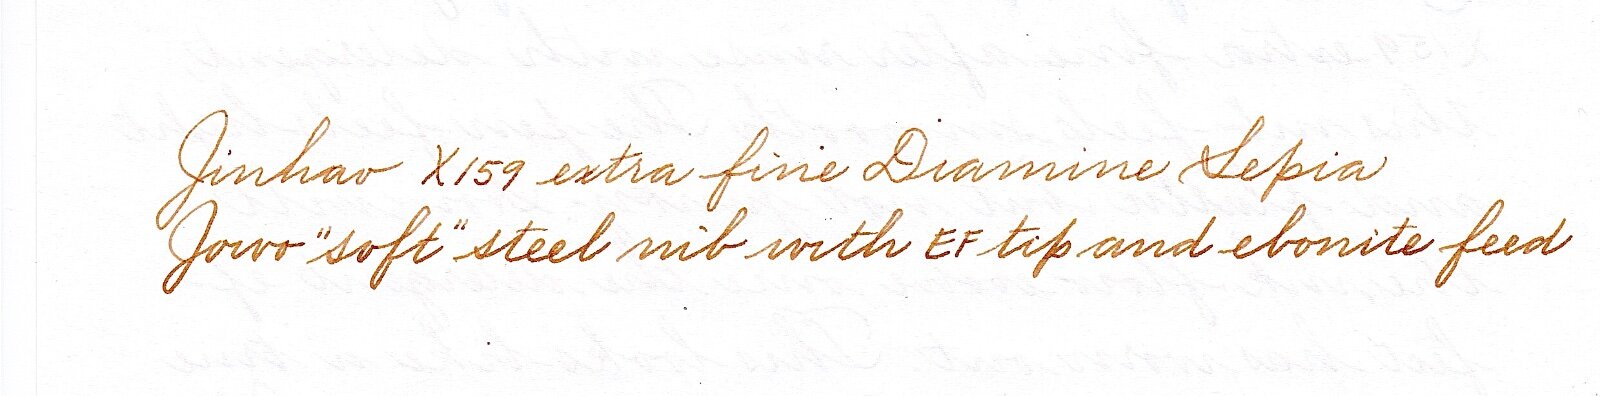 Jinhao X159 extra fine Diamine Sepia
Jowo "soft" steel nib with EF tip and ebonite feed